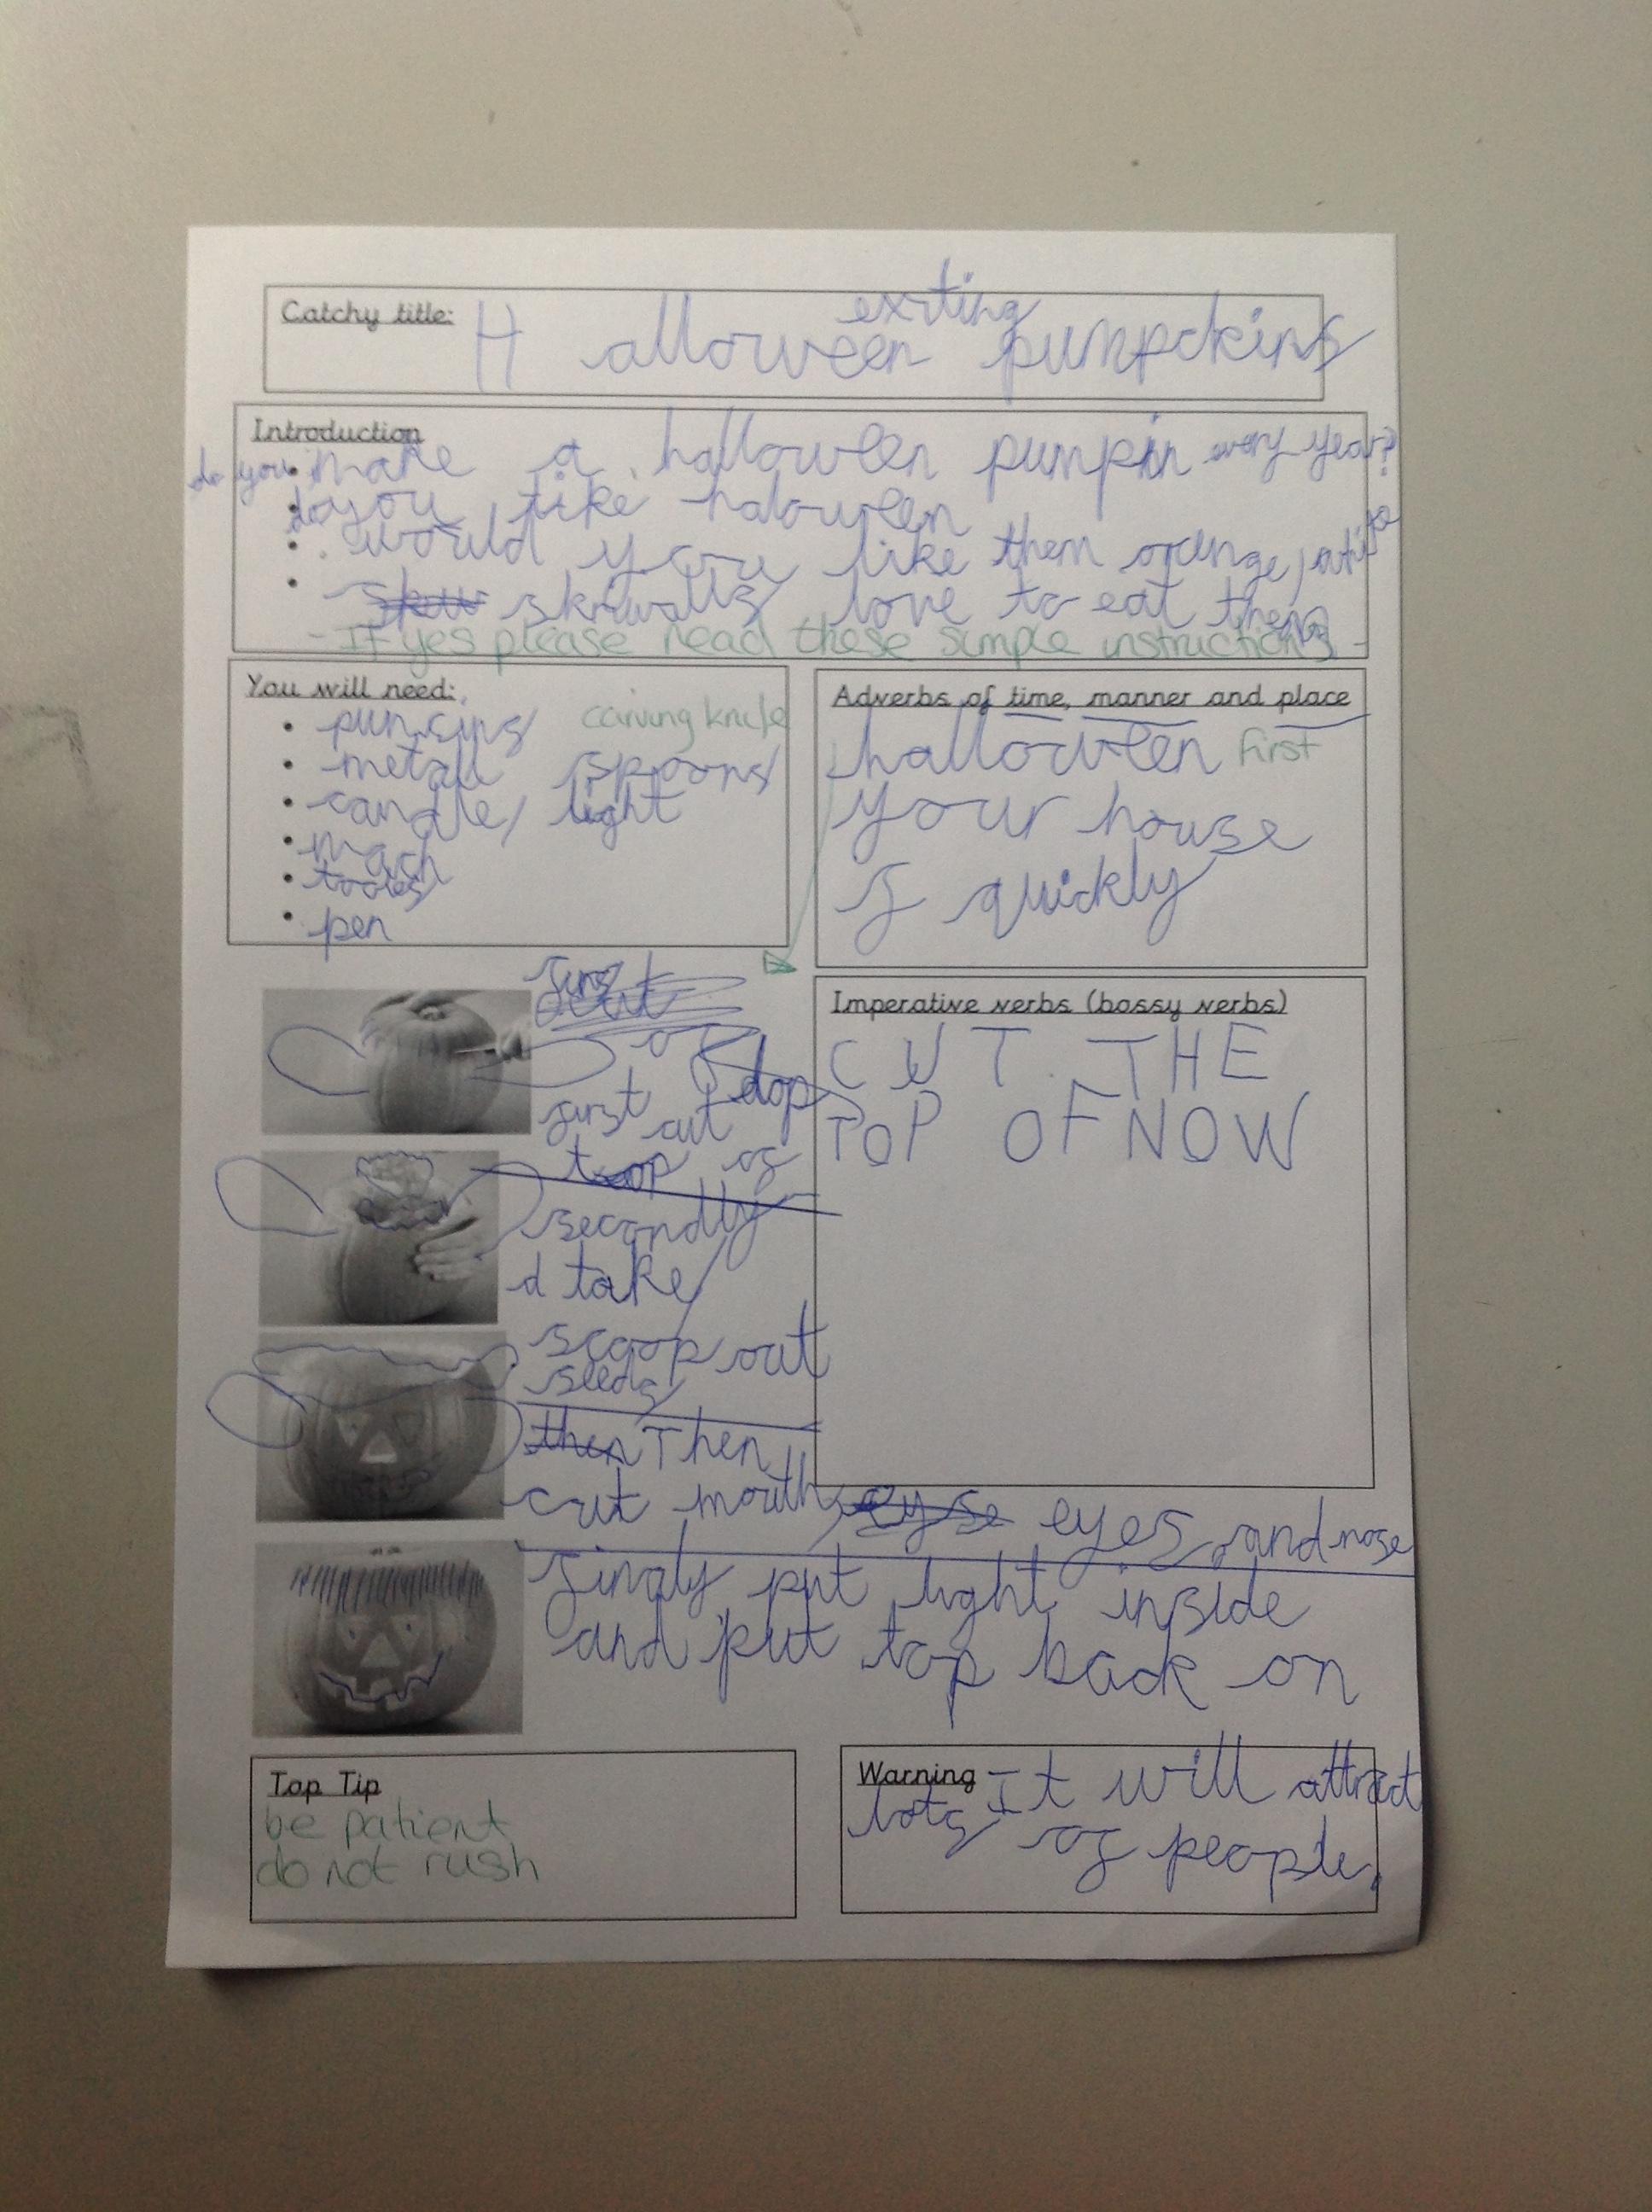 Catchy title:
exiting
Halloween pumpckins
Introduction
do you make a halloween pumpkin every year?
do you like halouween
would you like them orange,
skriwalls love to eat them
- If yes please read these simple instructions -
You will need:
carving knife
puncings
metall spoons
candle/light
mach
tooles
pen
Adverbs of time, manner and place
halloween first
your house
quickly
first cut
top of
secondly
take
scoop out
seeds
then Then
cut mouth, eyse eyes, and nose
finaly put light inside
and put top back on
Imperative verbs (bossy verbs)
CUT THE
TOP OF NOW
Top Tip
be patient
do not rush
Warning It will attract
lots of people.